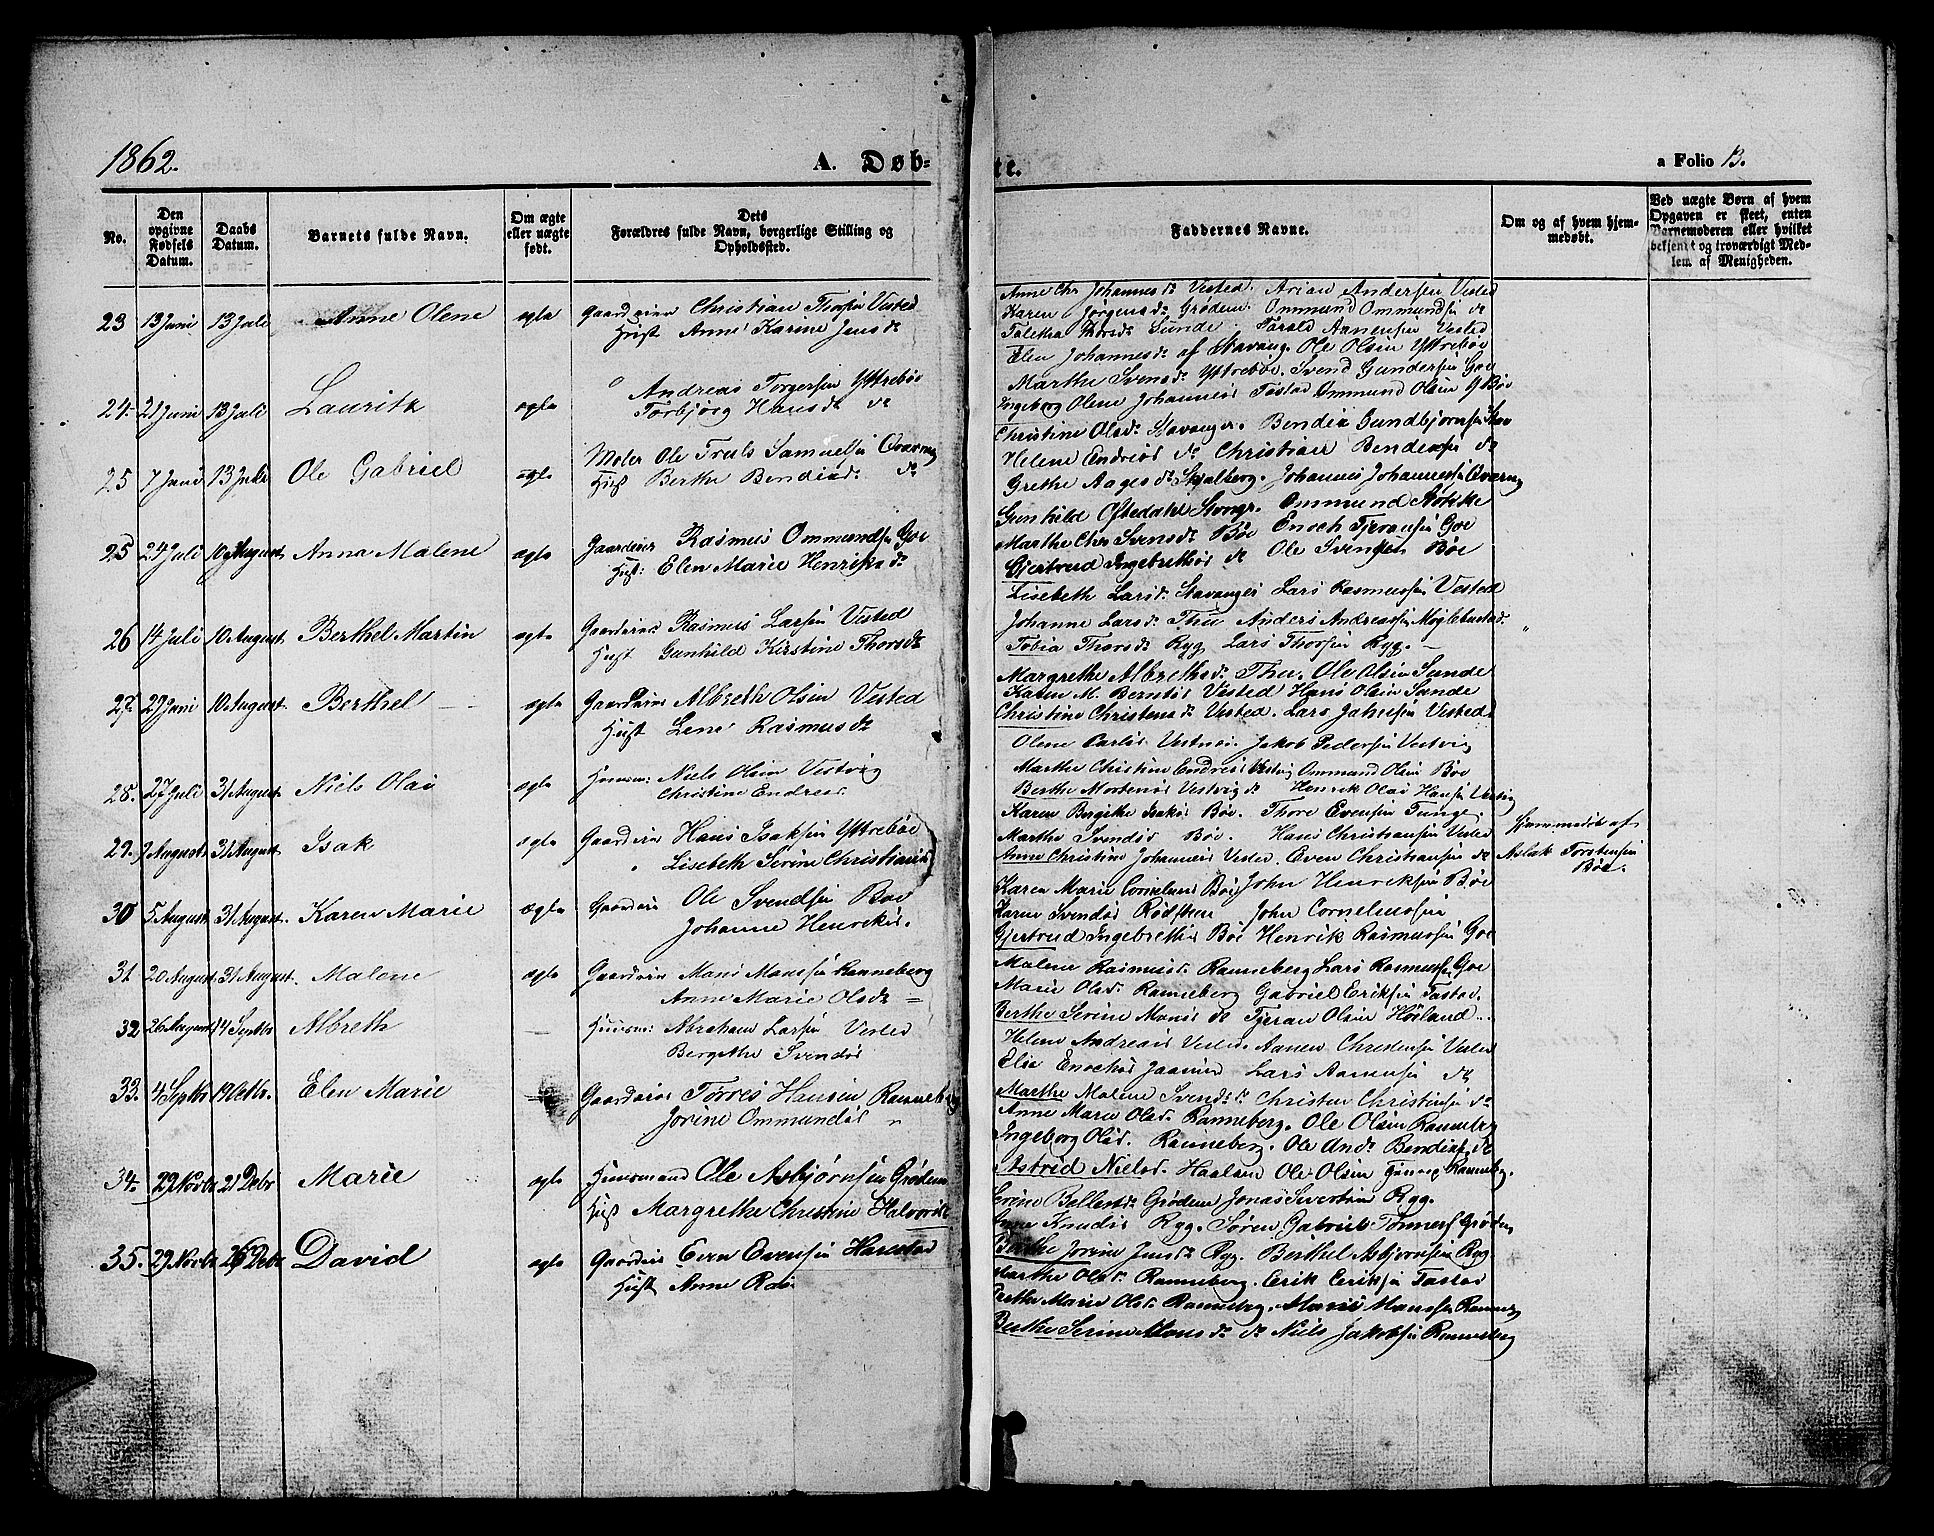 1862. A. Døb-
te. a Folio 13.
No.
Den opgivne Fødsels Datum.
Daabs Datum.
Barnets fulde Navn.
Om ægte eller uægte født.
Dets Forældres fulde Navn, borgerlige Stilling og Opholdssted.
Faddernes Navne.
Om og af hvem hjemmedøbt.
Ved uægte Børn af hvem Opgaven er skeet, enten Barnemoderen eller hvilket bekjendt og troværdigt Medlem af Menigheden.
23 13 Juni 13 Juli Anne Olene ægte Gaardeier Christian Thorsen Vested
Hust Anne Karine Jensdr
Anne Chr Johannesdr Vested. Arian Andersen Vested
Karen Jørgensdr Grødem. Ommund Ommundsen dr
Taletha Thorsdr Sunde. Tarald Aanensen Vested
24. 21 Juni 13 Juli Lauritz ægte Andreas Torgersen Yttrebøe
Torbjørg Hansdr dr
Elen Johannesdr af Stavang. Ole Olsen Yttrebøe
Marthe Svensdr Yttrebøe. Svend Gundersen Goe
Ingeborg Olene Johannesd Tastad Ommund Olsen G Bøe
25 7 Juni 13 Juli Ole Gabriel ægte Moler Ole Truls Samuelsen Qværnes
Hust Berthe Bendixd. dr
Christine Olsdr Stavanger. Bendix Gundbjørnsen Stav
Helene Endresd dr Christian Bendixsen dr
Grethe Aagesdr Skjalberg. Johannes Johannessen Qværn
25 24 Juli 10 August Anna Malene ægte Gaardeier Rasmus Ommundsen Goe
Hust: Elen Marie Henriksdr
Gunhild Oftedahl Stvngr. Ommund Stokke
Marthe Chr Svensdr Bøe Enoch Tjeransen Goe
Gjertrud Ingebretsd dr Ole Svensen Bøe
26 14 Juli 10 August. Berthel Martin ægte Gaardeier Rasmus Larsen Vested
Hust Gunhild Kirstine Thorsdr
Lisebeth Larsd. Stavanger Lars Rasmussen Vested
Johanne Larsdr Thu Anders Andreassen Møglebustad.
Tobia Thorsdr Ryg Lars Thorsen Ryg. -
27. 29 Juni 10 August. Berthel ægte Gaardeier Albreth Olsen Vested
Hust Lene Rasmusdr
Margrethe Albrethsdr Thu. Ole Olsen Sunde
Karen M. Berntsd Vested Hans Olsen Sunde
Christine Christensdr Vested. Lars Jahnsen Vested.
28. 27 Juli 31 August. Niels Olai ægte Huusm: Niels Olsen Vestvig
Christine Endresd
Olene Carlsd Vestnes. Jakob Pedersen Vestvig
Marthe Christine Endresd Vestvig Ommund Olsen Bøe
Berthe Mortensd Vestvig dr Henrik Olai Hansen Vestvig
29. August 31 August. Isak ægte Gaardeier Hans Isaksen Yttrebøe
Lisebeth Serine Christiansd
Karen Bergithe Isaksd Bøe. Thore Evensen Tunge.
Marthe Svendsd Bøe. Hans Christiansen Vested
Anne Christine Johannesd Vested. Even Christiansen dr
Hjemmedøbt af Aslak Torstensen Bøe.
30 5 August 31 August. Karen Marie ægte Gaardeier Ole Svendsen Bøe
Johanne Henriksd.
Karen Marie Cornelius Bøe John Henriksen Bøe
Karen Svendsd Rødsheen John Corneliussen
Gjertrud Ingebretsd Bøe Henrik Rasmussen Goe
31. 20 August 31 August. Malene ægte Gaardeier Mons Monssen Ranneberg
Anne Marie Olsdr =
Malene Rasmusd. Ranneberg Lars Rasmussen Goe
Marie Olsd. Ranneberg Gabriel Eriksen Tastad.
Berthe Serine Monsd dr Tjeran Olsen Høiland...
32 26 August 14 Septbr. Albreth — Huusm: Abraham Larsen Vested
Bergethe Svendsd
Helene Andreasd Vested. Aanen Christensen Vested
Else Enochsd Jaasund Lars Aanensen dr
Marthe Malene Svendsdr. Christen Christensen dr
33. 4 Septbr 19 Octbr. Elen Marie Gaardeier Torres Hansen Ranneberg
Jorine Ommundsd "
Anne Marie Olsd. Ranneberg. Ole Olsen Ranneberg
Ingeborg Olsd. Ranneberg. Ole Andr Bendixs. dr
Astrid Nielsd. Haaland Ole Olsen Ranneberg.
34. 29 Novbr 21 Debr Marie ægte Huusmand Ole Asbjørnsen Grødem
Hust Margrethe Christine Halvorsd
Serine Bellesdr Grødem Jonas Sivertsen Ryg.
Knudsd Ryg. Søren Gabriel Tønnes Grødem
Berthe Jorine Jensdr Ryg. Berthel Asbjørnsen Ryg
35. 29 Novbr 26 Debr David ægte Gaardeier Even Evensen Harestad
Hust Anne Ras
Marthe Olsd. Ranneberg. Eerik Eeriksen Tastad
Grethe Marie Olsd. Ranneberg. Mons Monssen Ranneberg
Berthe Serine Monsdr dr Niels Jakobsen Ranneberg